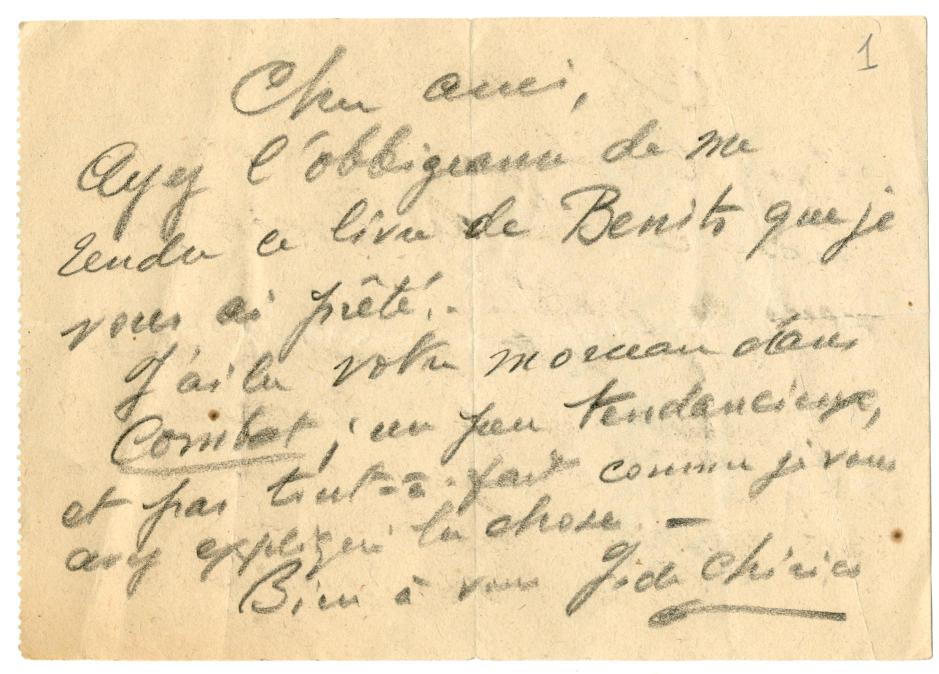 1
Cher ami,
Ayez l'obbligeance de me
rendre ce livre de Benito que je
vous ai prêté.
J'ai lu votre morceau dans
Combat ; un peu tendancieux,
et pas tout-à-fait comme je vous
la chose. —
Bien à vous G. de Chirico